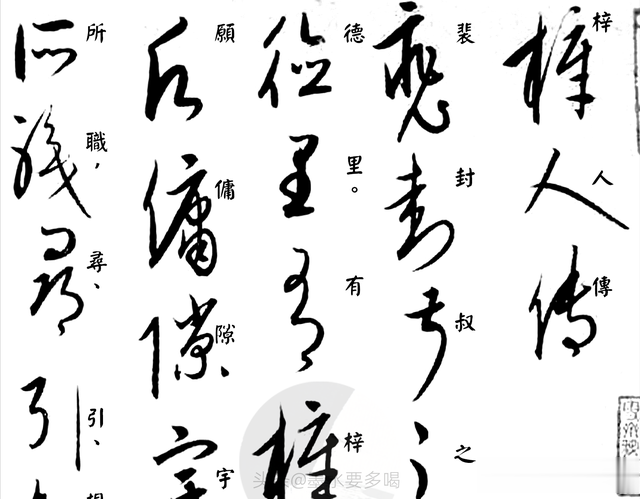 梓人傳
裴封叔之
德里。有梓
願傭隙宇
所職，尋、引、
头条@墨水要多喝